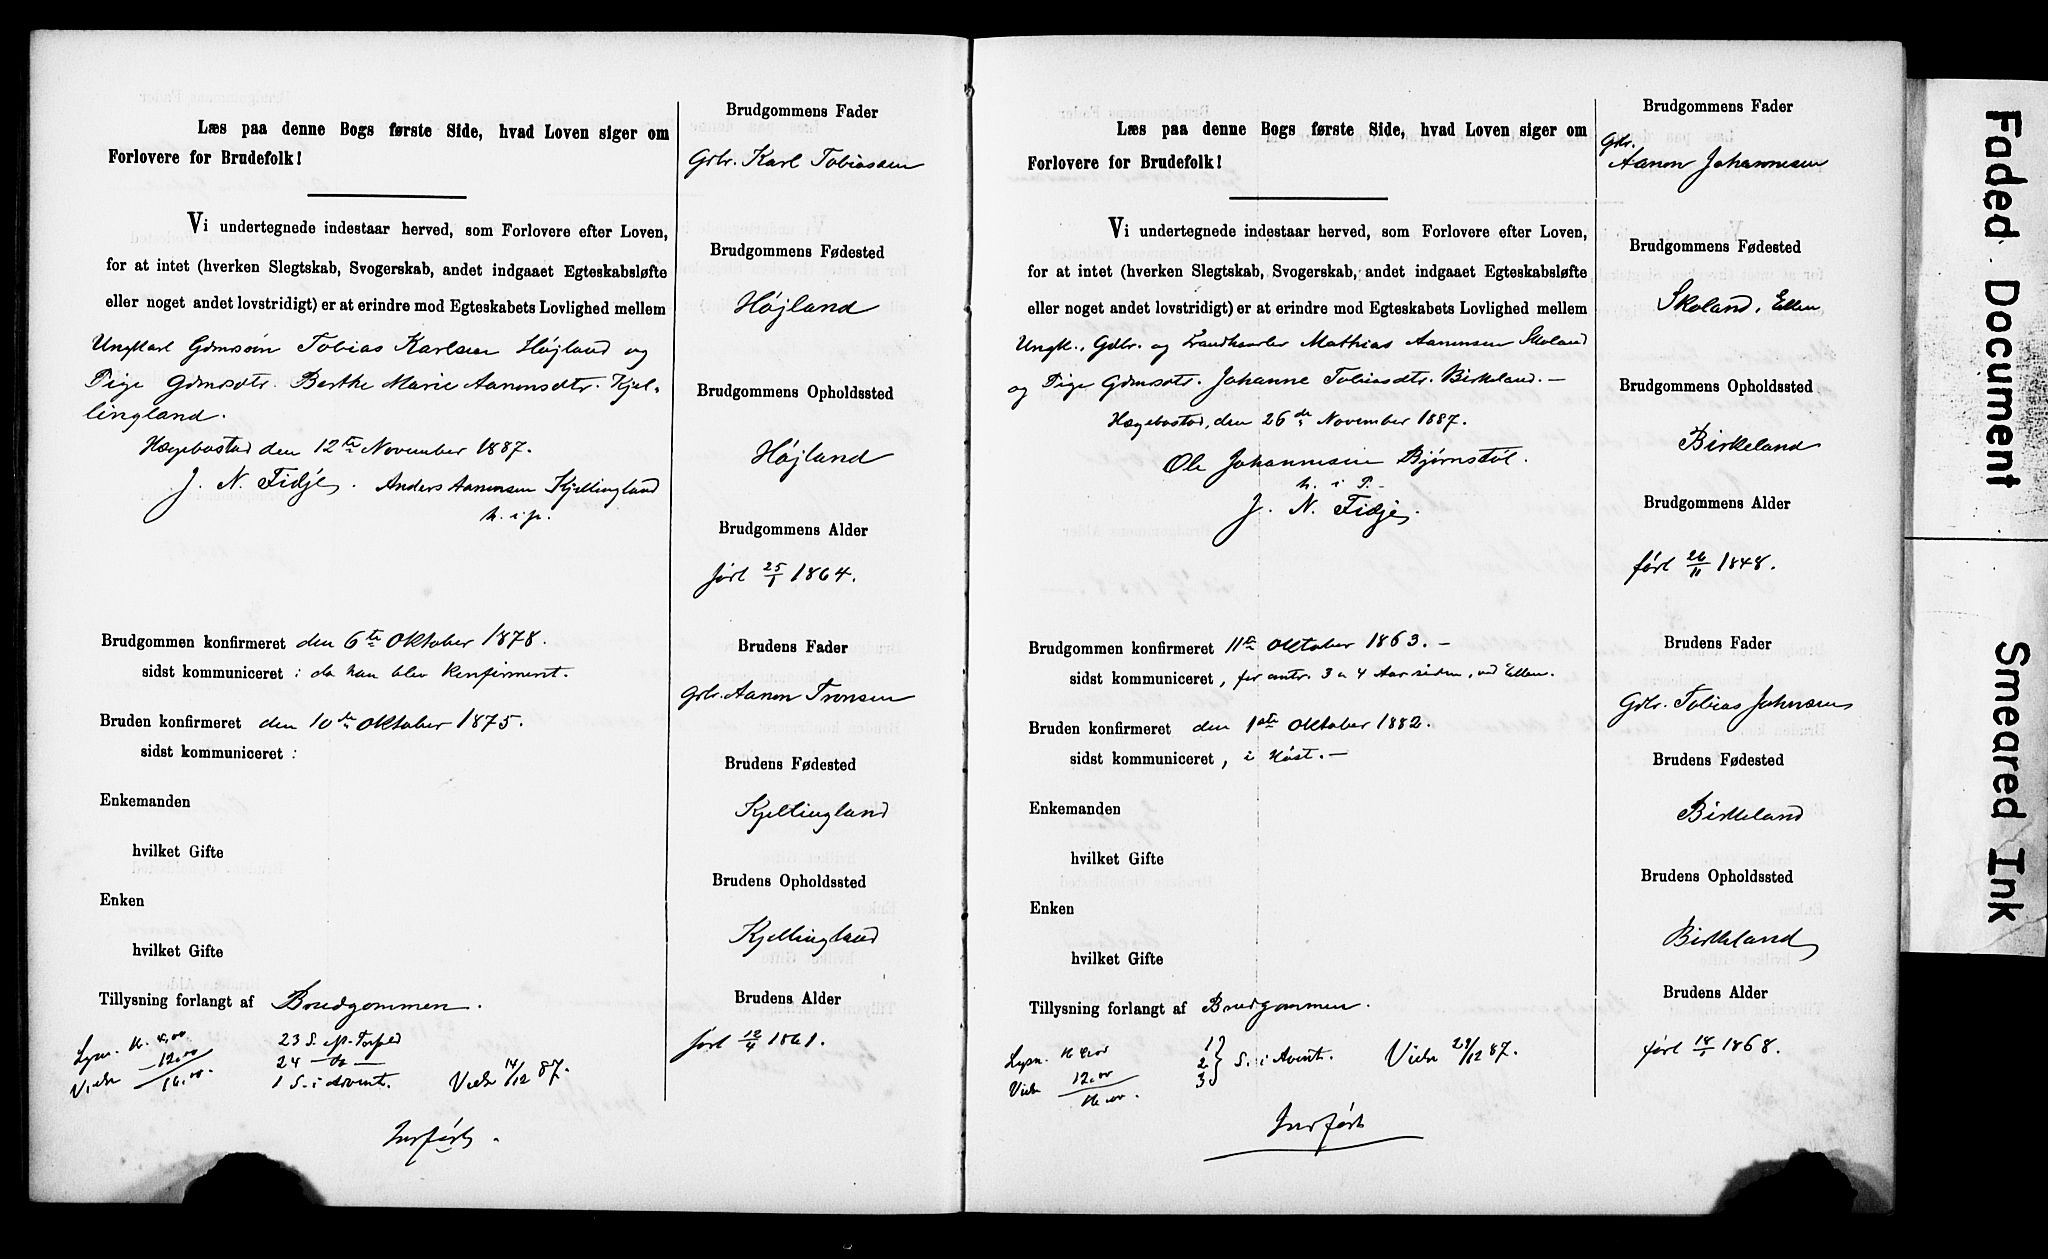 Læs paa denne Bogs første Side, hvad Loven siger om
Forlovere for Brudefolk!
Vi undertegnede indestaar herved, som Forlovere efter Loven,
for at intet (hverken Slegtskab, Svogerskab, andet indgaaet Egteskabsløfte
eller noget andet lovstridigt) er at erindre mod Egteskabets Lovlighed mellem
Ungkarl Gdmssøn Tobias Karlsen Højland og
Pige Gdmsdtr. Berthe Marie Aanensdtr. Kjel-
lingland.
Hægebostad den 12te November 1887.
J. N. Fidje. Anders Aanensen Kjellingland
h. i p.
Brudgommen konfirmeret den 6te Oktober 1878.
sidst kommuniceret : da han blev konfirmert.
Bruden konfirmeret den 10de Oktober 1875.
sidst kommuniceret :
Enkemanden
hvilket Gifte
Enken
hvilket Gifte
Tillysning forlangt af Brudgommen.
Lysn. K. 4,00 23 S. e. Trefd
12,00 24 — do —
Vielse 16,00 1 S. i Advent. Viede 14/12 87.
Indført.
Brudgommens Fader
Gdbr. Karl Tobiassen
Brudgommens Fødested
Højland
Brudgommens Opholdssted
Højland
Brudgommens Alder
født 25/1 1864.
Brudens Fader
Gdbr. Aanon Tronsen
Brudens Fødested
Kjellingland
Brudens Opholdssted
Kjellingland
Brudens Alder
født 12/4 1861.
Læs paa denne Bogs første Side, hvad Loven siger om
Forlovere for Brudefolk!
Vi undertegnede indestaar herved, som Forlovere efter Loven,
for at intet (hverken Slegtskab, Svogerskab, andet indgaaet Egteskabsløfte
eller noget andet lovstridigt) er at erindre mod Egteskabets Lovlighed mellem
Ungk., Gdbr. og Landhandler Mathias Aanensen Skoland
og Pige Gdmsdtr. Johanne Tobiasdtr. Birkeland. —
Hægebostad, den 26de November 1887.
Ole Johannesen Bjørnstøl.
h. i P.
J. N. Fidje.
Brudgommen konfirmeret 11te Oktober 1863. —
sidst kommuniceret, for omtr. 3 a 4 Aar siden, ved Eiken.
Bruden konfirmeret den 1ste Oktober 1882.
sidst kommuniceret, i Høst. —
Enkemanden
hvilket Gifte
Enken
hvilket Gifte
Tillysning forlangt af Brudgommen.
Lysn. K 4,00 1
Vielse 12,00 2 } S. i Advent. Viede 29/12 87.
16,00. 3
Indført
Brudgommens Fader
Gdbr.
Aanon Johannesen
Brudgommens Fødested
Skoland, Eiken
Brudgommens Opholdssted
Birkeland
Brudgommens Alder
født 26/11 1848.
Brudens Fader
Gdbr. Tobias Johnsen
Brudens Fødested
Birkeland
Brudens Opholdssted
Birkeland
Brudens Alder
født 18/1 1868.
Faded Document
Smeared Ink